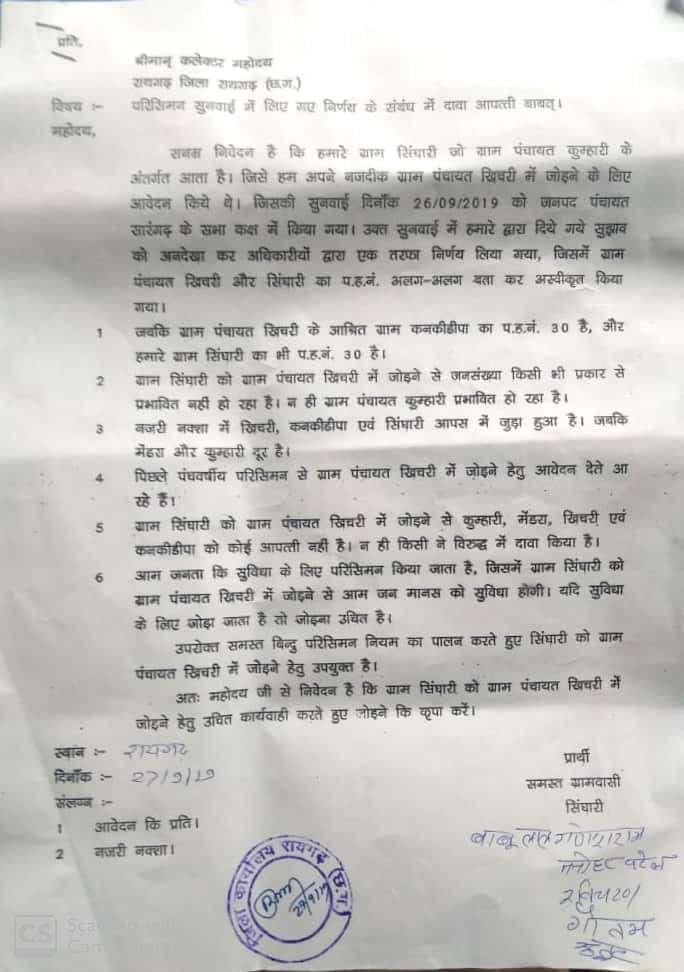 प्रति,
श्रीमान् कलेक्टर महोदय
रायगढ़ जिला रायगढ़ (छ.ग.)
विषय :- परिसिमन सुनवाई में लिए गए निर्णय के संबंध में दावा आपत्ती बाबत्।
महोदय,
सनम्र निवेदन है कि हमारे ग्राम सिंघारी जो ग्राम पंचायत कुम्हारी के
अंतर्गत आता है। जिसे हम अपने नजदीक ग्राम पंचायत खिचरी में जोड़ने के लिए
आवेदन किये थे। जिसकी सुनवाई दिनाँक 26/09/2019 को जनपद पंचायत
सारंगढ़ के सभा कक्ष में किया गया। उक्त सुनवाई में हमारे द्वारा दिये गये सुझाव
को अनदेखा कर अधिकारीयों द्वारा एक तरफा निर्णय लिया गया, जिसमें ग्राम
पंचायत खिचरी और सिंघारी का प.ह.नं. अलग-अलग बता कर अस्वीकृत किया
गया।
1 जबकि ग्राम पंचायत खिचरी के आश्रित ग्राम कनकीडीपा का प.ह.नं. 30 है, और
हमारे ग्राम सिंघारी का भी प.ह.नं. 30 है।
2 ग्राम सिंघारी को ग्राम पंचायत खिचरी में जोड़ने से जनसंख्या किसी भी प्रकार से
प्रभावित नही हो रहा है। न ही ग्राम पंचायत कुम्हारी प्रभावित हो रहा है।
3 नजरी नक्शा में खिचरी, कनकीडीपा एवं सिंघारी आपस में जुड़ा हुआ है। जबकि
मेंडरा और कुम्हारी दूर है।
4 पिछले पंचवर्षीय परिसिमन से ग्राम पंचायत खिचरी में जोड़ने हेतु आवेदन देते आ
रहे हैं।
5 ग्राम सिंघारी को ग्राम पंचायत खिचरी में जोड़ने से कुम्हारी, मेंडरा, खिचरी एवं
कनकीडीपा को कोई आपत्ती नही है। न ही किसी ने विरुद्ध में दावा किया है।
6 आम जनता कि सुविधा के लिए परिसिमन किया जाता है, जिसमें ग्राम सिंघारी को
ग्राम पंचायत खिचरी में जोड़ने से आम जन मानस को सुविधा होगी। यदि सुविधा
के लिए जोड़ा जाता है तो जोड़ना उचित है।
उपरोक्त समस्त बिन्दु परिसिमन नियम का पालन करते हुए सिंघारी को ग्राम
पंचायत खिचरी में जोड़ने हेतु उपयुक्त है।
अतः महोदय जी से निवेदन है कि ग्राम सिंघारी को ग्राम पंचायत खिचरी में
जोड़ने हेतु उचित कार्यवाही करते हुए जोड़ने कि कृपा करें।
स्थान :- रायगढ़
दिनाँक :- 27/9/19
संलग्न :-
1 आवेदन कि प्रति।
2 नजरी नक्शा।
प्रार्थी
समस्त ग्रामवासी
सिंघारी
बाबूलाल गणेशराम
मनोहर पटेल
गौतम
जिला कार्यालय रायगढ़ (छ.ग.)
CS